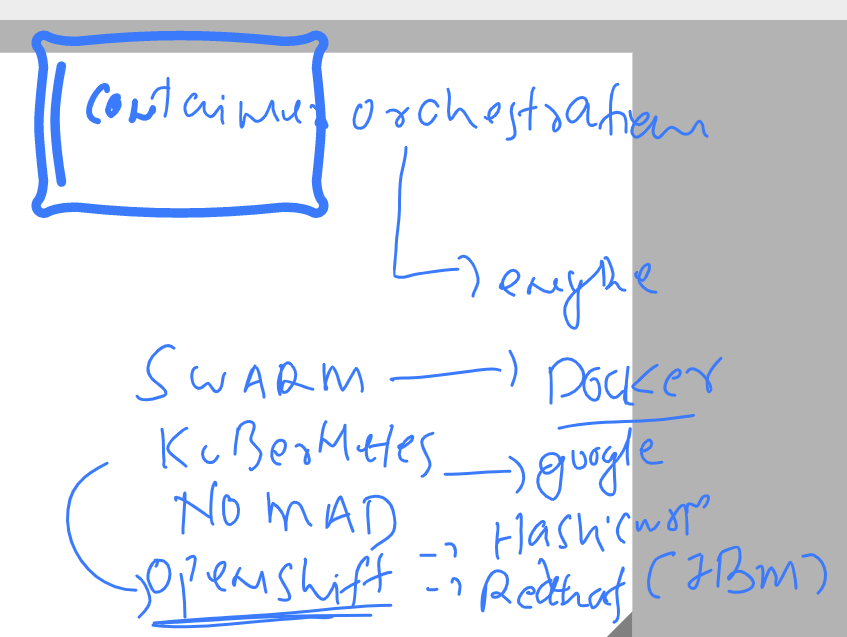 container orchestration
engine
SWARM → Docker
KuBerNetes → google
NOMAD => Hashicorp
openshift => Redhat (IBM)